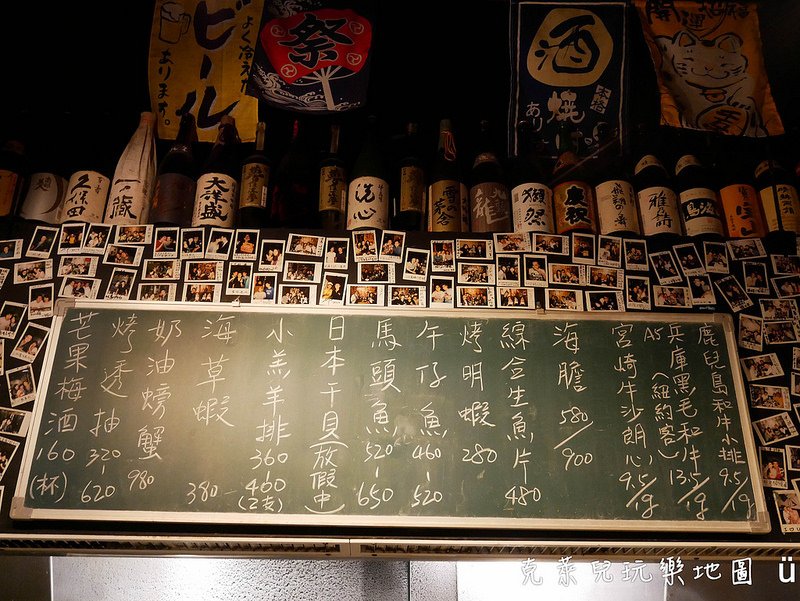 ビール
よく冷えた
あります。
祭
酒
あり
開運
久保田
一ノ蔵
大洋盛
洗心
獺祭
慶秋
雅山流
鹿兒島和牛小排 9.5/1g
A5
兵庫黑毛和牛 13.5/1g
(紐約客)
宮崎牛沙朗心 9.5/1g
海膽 580/900
綜合生魚片 480
烤明蝦 280
午仔魚 460-520
馬頭魚 520-650
日本干貝(放假中)
小羔羊排 360-460
(2支)
海草蝦 380
奶油螃蟹 980
烤透抽 320-620
芒果梅酒 160
(杯)
克萊兒玩樂地圖 ü